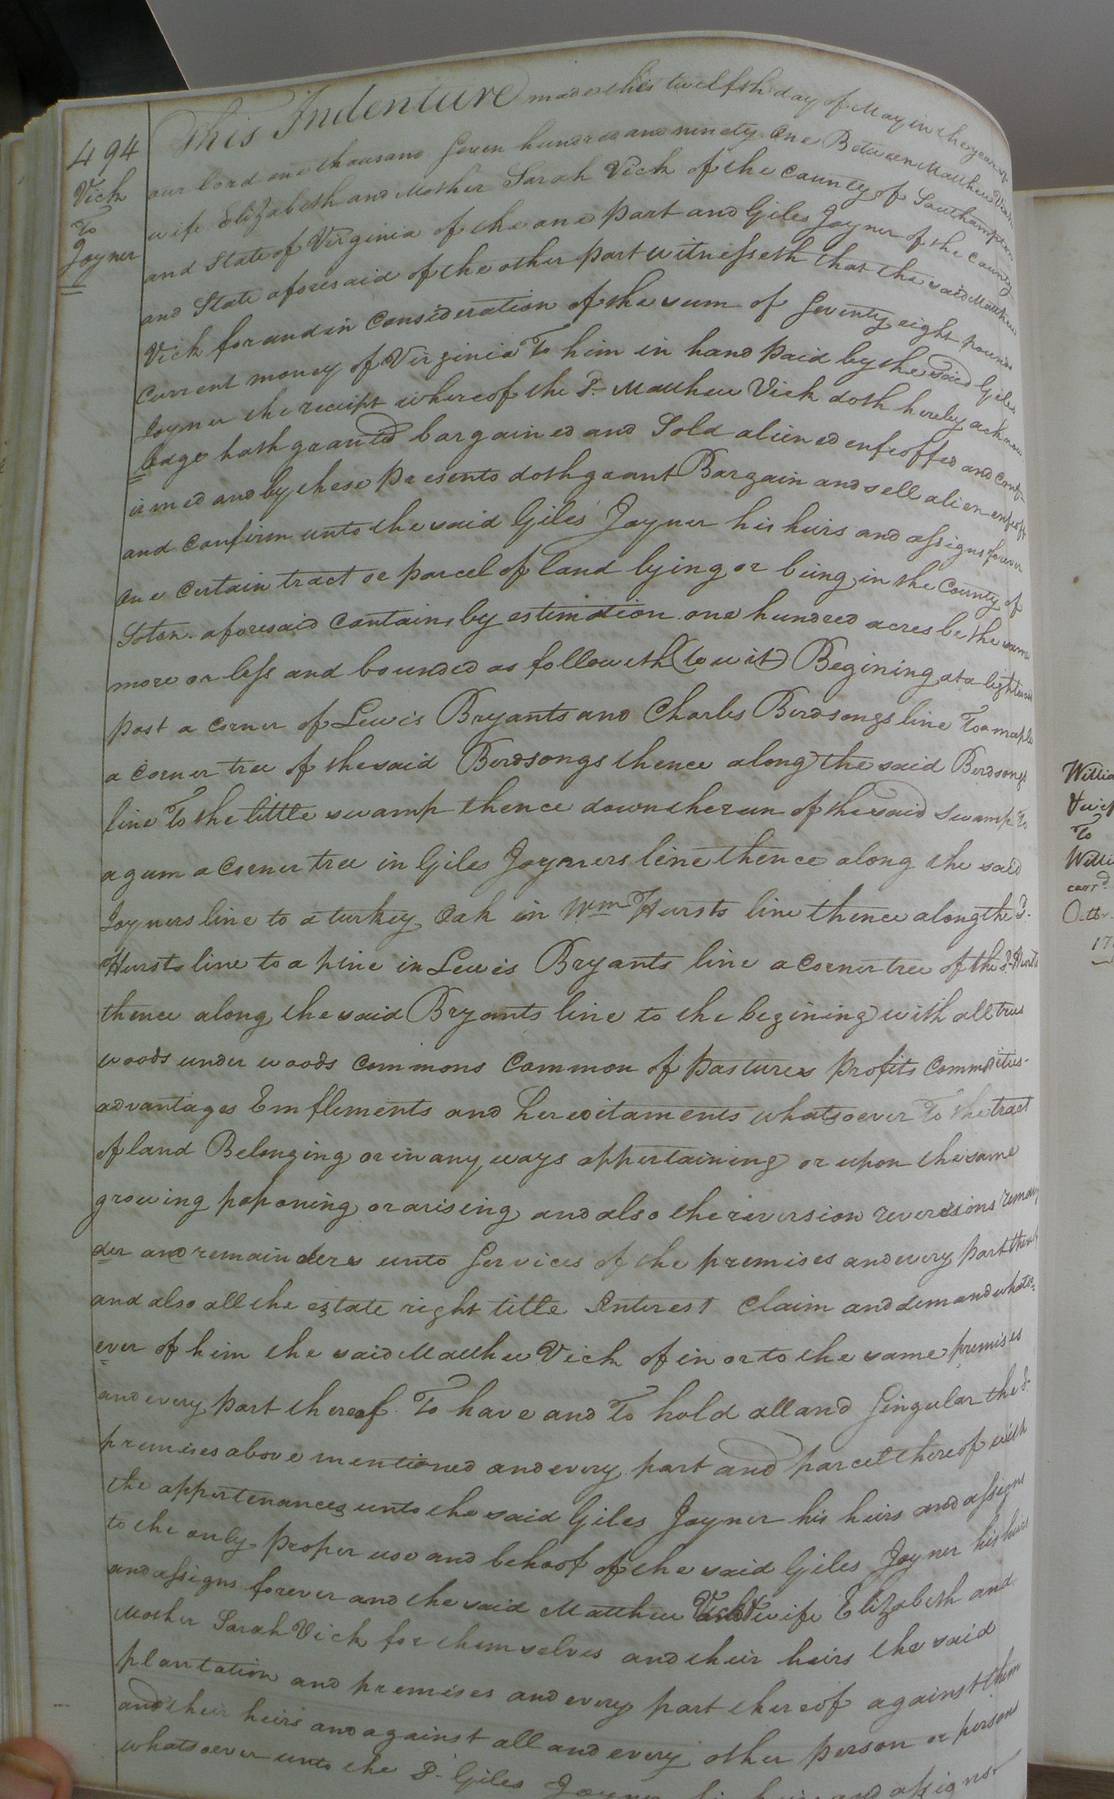 494
Vick
To
Joyner
This Indenture made this twelfth day of May in the year of
our lord one thousand Seven hundred and ninety One Between Matthew Vick
wife Elizabeth and Mother Sarah Vick of the County of Southampton
and State of Virginia of the one part and Giles Joyner of the County
and State aforesaid of the other part witnesseth that the said Matthew
Vick for and in Consideration of the sum of Seventy eight pounds
Current money of Virginia To him in hand paid by the said Giles
Joyner the receipt whereof the Sd. Matthew Vick doth hereby acknow
ledge hath granted bargained and Sold aliened enfeoffed and Conf-
irmed and by these presents doth grant Bargain and sell alien enfeoff
and Confirm unto the said Giles Joyner his heirs and assigns forever
One Certain tract or parcel of land lying or being in the County of
Soton. aforesaid Contains by estimation one hundred acres be the same
more or less and bounded as followeth (to wit) Begining at a lightwood
post a Corner of Lewis Bryants and Charles Birdsongs line To a maple
a Corner tree of the said Birdsongs thence along the said Birdsongs
line To the little swamp thence down the run of the said Swamp To
a gum a Corner tree in Giles Joyners line thence along the said
Joyners line to a turkey Oak in Wm. Hursts line thence along the Sd.
Hursts line to a pine in Lewis Bryants line a Corner tree of the Sd. Hursts
thence along the said Bryants line to the begining with all trees
woods under woods Commons Common of pastures profits Commodities
advantages Emflements and hereditaments whatsoever To the tract
of land Belonging or in any ways appertaining or upon the same
growing paponing or arising and also the reversion reversions remain
der and remainders unto Services of the premises and every part thereof
and also all the estate right title Interest Claim and demand whats-
ever of him the said Matthew Vick of in or to the same premises
and every part thereof To have and To hold all and Singular the Sd.
premises above mentioned and every part and parcel thereof with
the appertenances unto the said Giles Joyner his heirs and assigns
to the only proper use and behoof of the said Giles Joyner his heirs
and assigns forever and the said Matthew Vick & wife Elizabeth and
Mother Sarah Vick for themselves and their heirs the said
plantation and premises and every part thereof against them
and their heirs and against all and every other person or persons
whatsoever unto the Sd. Giles Joyner his heirs and assigns
Willia
& wife
To
Willi
Octbr.
17